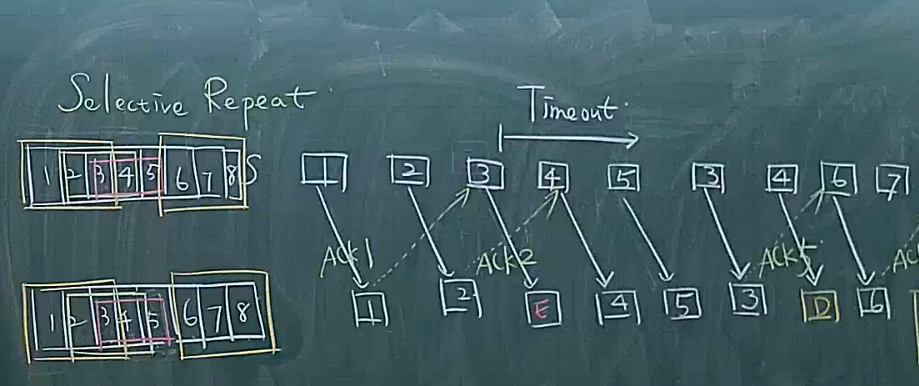 Selective Repeat
Timeout
1 2 3 4 5 6 7 8 S
1 2 3 4 5 3 4 6 7
ACK1 ACK2 ACK5 AC
1 2 3 4 5 6 7 8
1 2 E 4 5 3 D 6